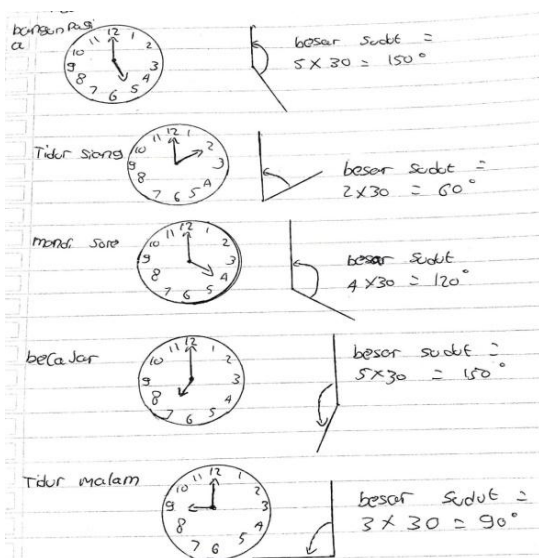 bangun pagi
a
12 1 2 3 4 5 6 7 8 9 10 11
besar sudut =
5 x 30 = 150°
Tidur siang
12 1 2 3 4 5 6 7 8 9 10 11
besar sudut =
2x30 = 60°
mandi sore
12 1 2 3 4 5 6 7 8 9 10 11
besar sudut
4 x30 = 120°
belajar
12 1 2 3 4 5 6 7 8 9 10 11
besar sudut =
5x30 = 150°
Tidur malam
12 1 2 3 4 5 6 7 8 9 10 11
besar sudut =
3 x 30 = 90°